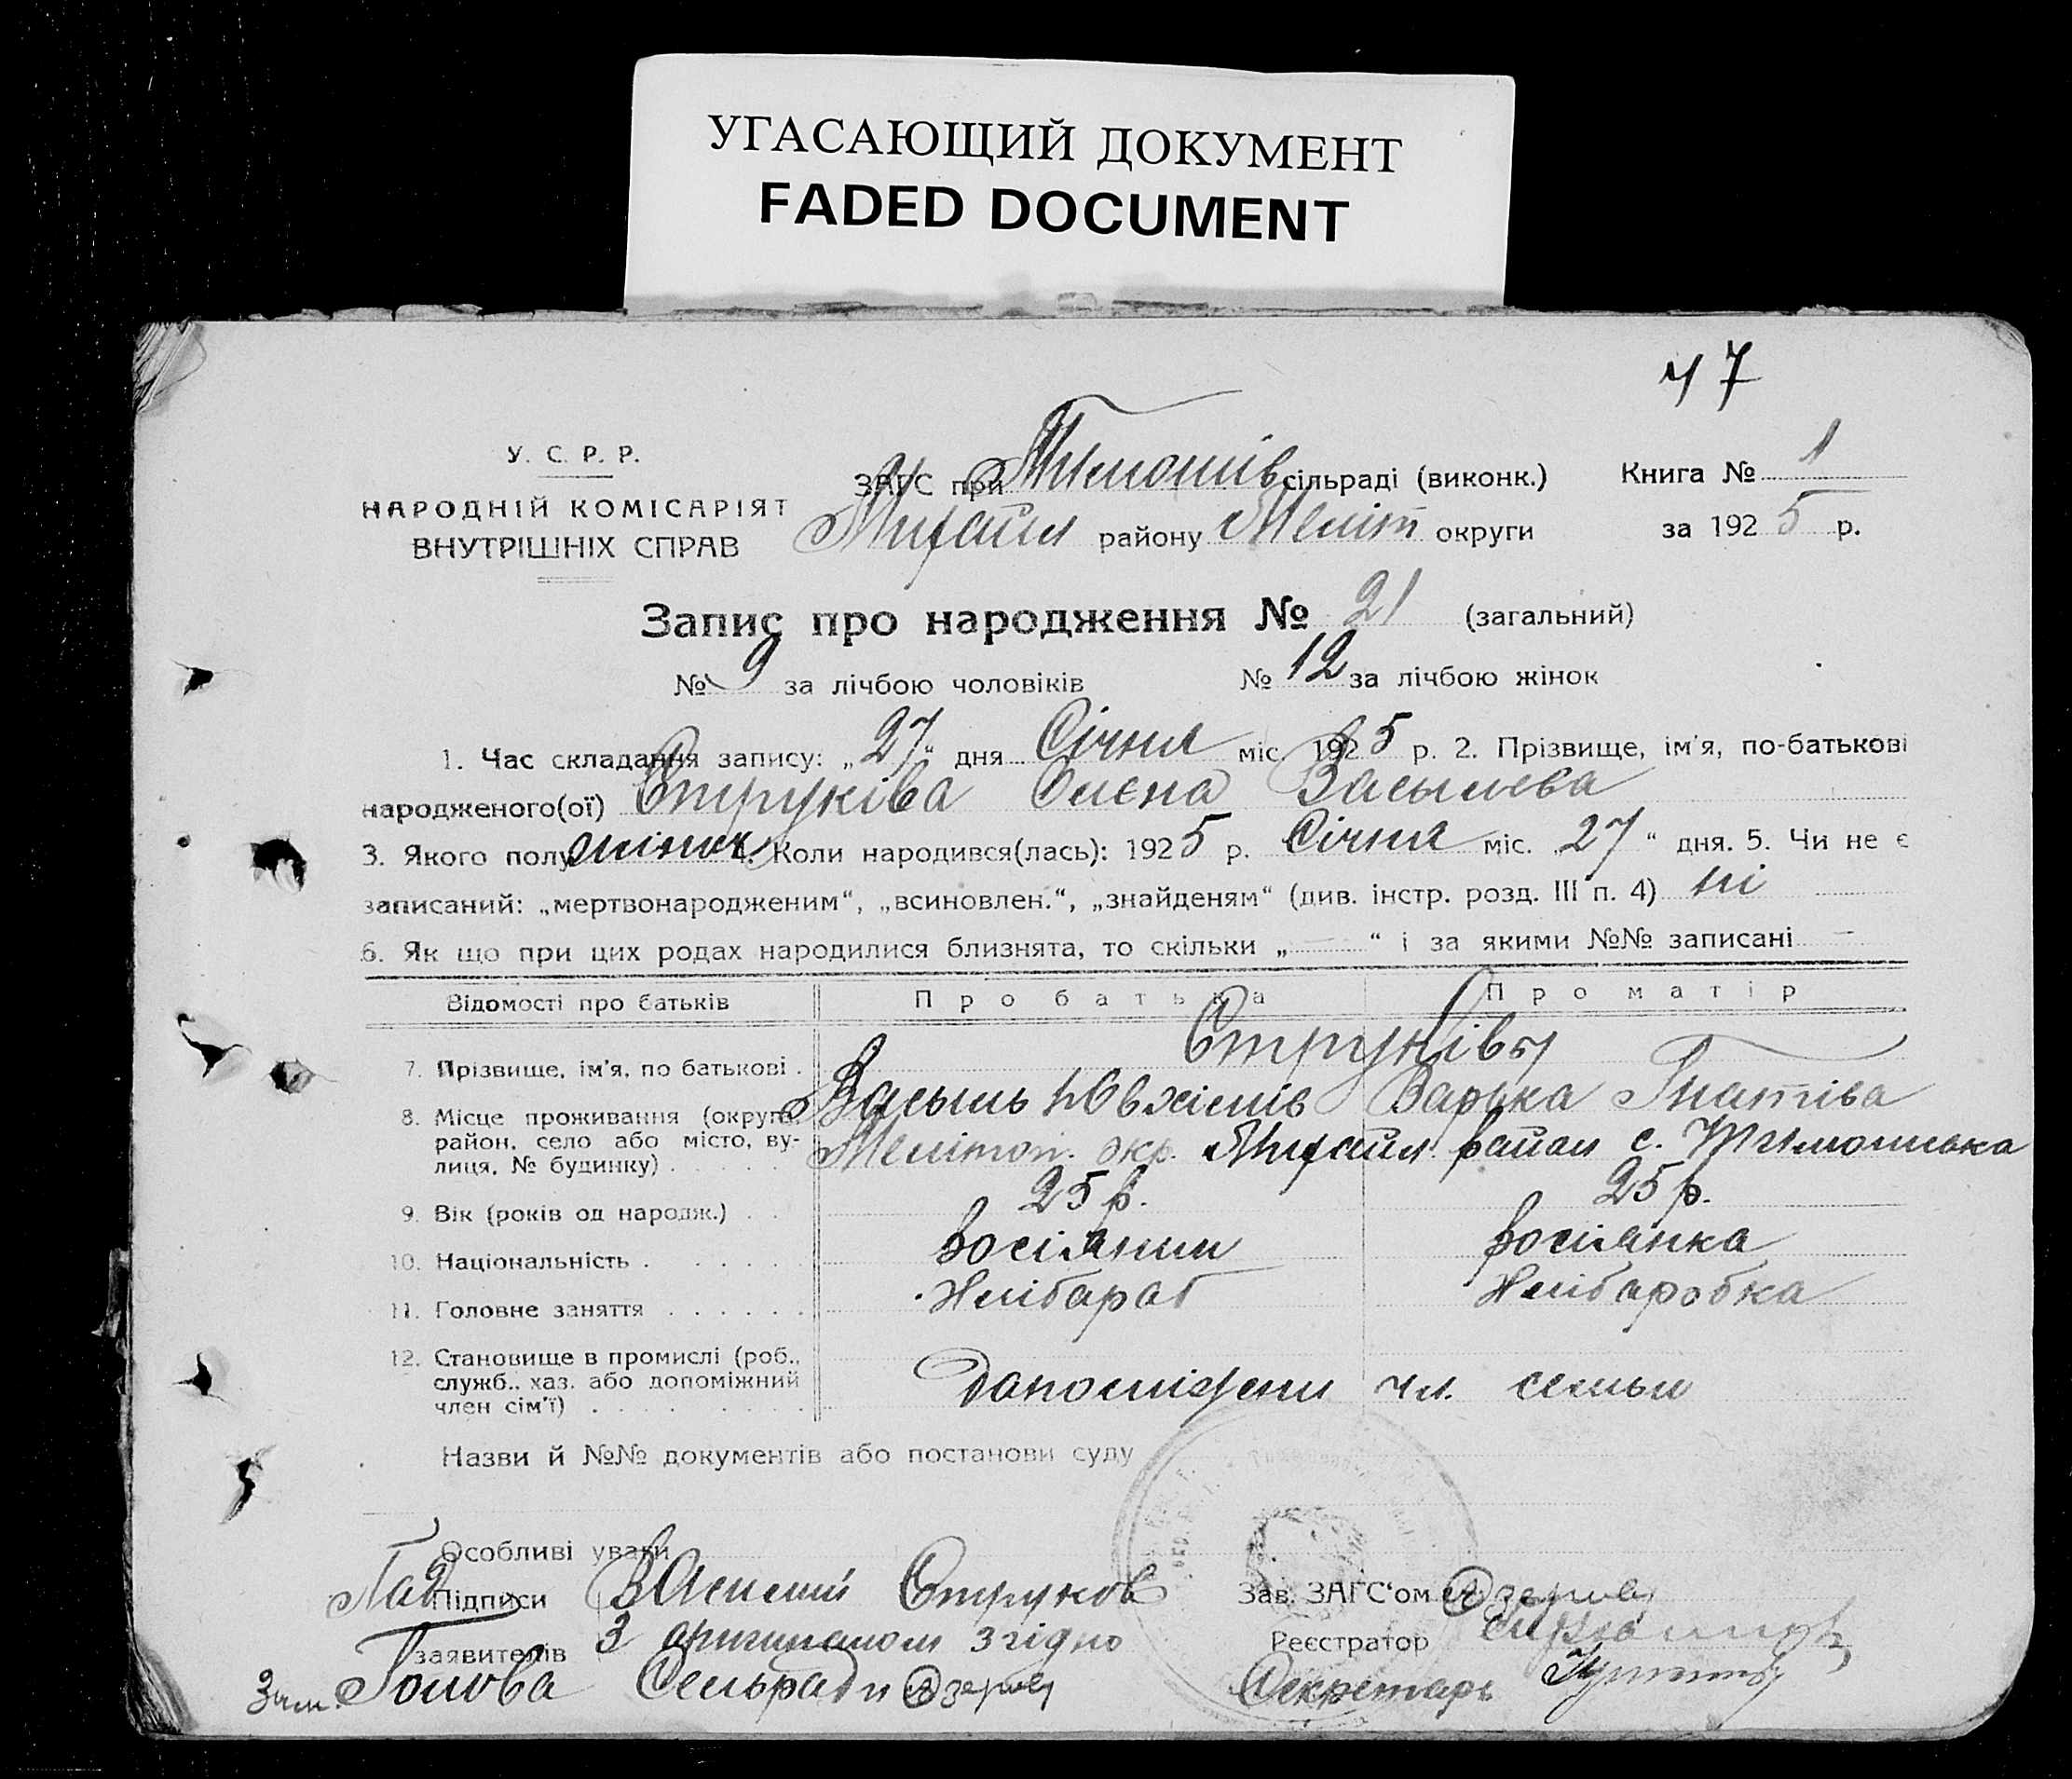 УГАСАЮЩИЙ ДОКУМЕНТ
FADED DOCUMENT
47
У. С. Р. Р.
НАРОДНІЙ КОМІСАРІЯТ
ВНУТРІШНІХ СПРАВ
ЗАГС при Тимошів сільраді (виконк.)
Михайл району Меліт округи
Книга № 1
за 1925 р.
Запис про народження № 21 (загальний)
№ 9 за лічбою чоловіків № 12 за лічбою жінок
1. Час складання запису: „27“ дня Січня міс. 1925 р. 2. Прізвище, ім'я, по-батькові
народженого(ої) Струківа Олєна Васильева
3. Якого полу жіноч 4. Коли народився(лась): 1925 р. Січня міс. „27“ дня. 5. Чи не є
записаний: „мертвонародженим“, „всиновлен.“, „знайденям“ (див. інстр. розд. III п. 4) ні
6. Як що при цих родах народилися близнята, то скільки „—“ і за якими №№ записані —
Відомості про батьків Про батька Про матір
Струківы
7. Прізвище, ім'я, по батькові . Василь Ювхімів Варька Гнатіва
8. Місце проживання (округа, район, село або місто, вулиця, № будинку) Мелітоп. окр. Михайл район с. Тимошівка
9. Вік (років од народж.) 25 р. 25 р.
10. Національність . росіянин росіянка
11. Головне заняття Хлібораб Хлібаробка
12. Становище в промислі (роб., служб., хаз. або допоміжний член сім'ї) чл. семьи
Назви й №№ документів або постанови суду
Особливі уваги
Підписи Струков
заявителів З оригиналом згідно
Зам. Голова Сельради
Зав. ЗАГС'ом
Реєстратор
Секретарь